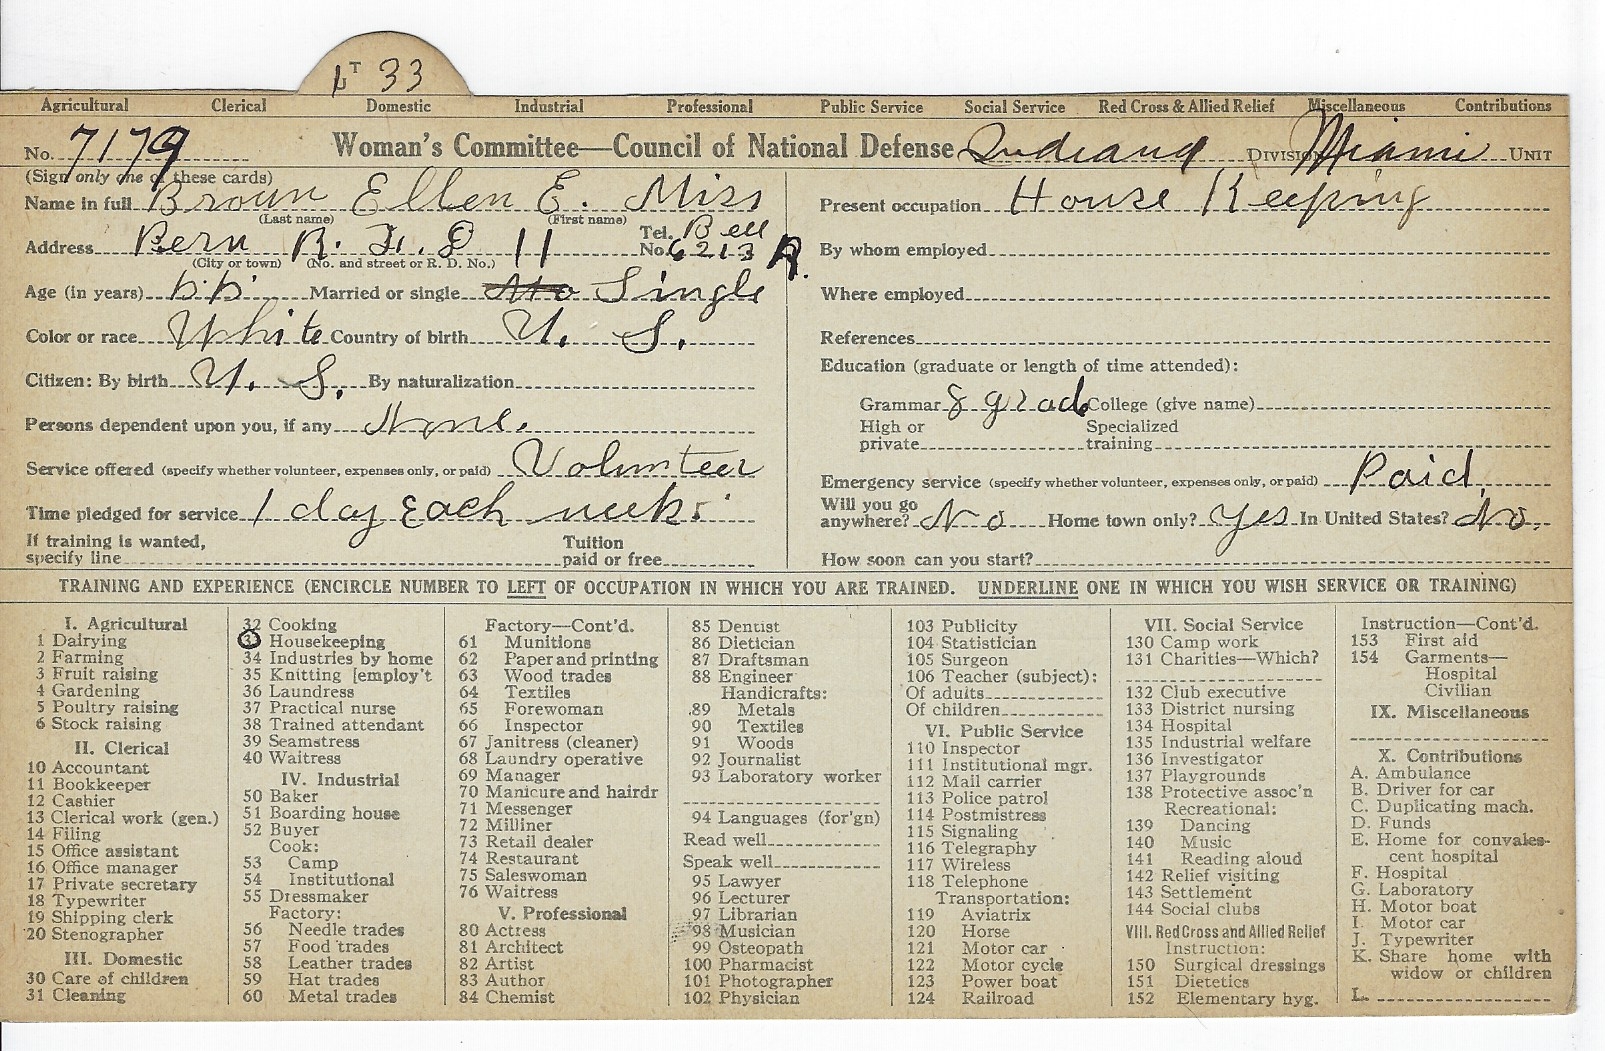 LT 33
Agricultural Clerical Domestic Industrial Professional Public Service Social Service Red Cross & Allied Relief Miscellaneous Contributions
No. 7179 Woman's Committee—Council of National Defense Indiana DIVISION Miami UNIT
(Sign only one of these cards)
Name in full Brown Ellen E. Miss
(Last name) (First name)
Address Peru R. F. D 11 Tel. No. Bell 6213 R.
(City or town) (No. and street or R. D. No.)
Age (in years) Married or single No Single
Color or race White Country of birth U. S.
Citizen: By birth U. S. By naturalization
Persons dependent upon you, if any None.
Service offered (specify whether volunteer, expenses only, or paid) Volunteer
Time pledged for service 1 day Each week.
If training is wanted, specify line Tuition paid or free
Present occupation House Keeping
By whom employed
Where employed
References
Education (graduate or length of time attended):
Grammar 8 grad College (give name)
High or private Specialized training
Emergency service (specify whether volunteer, expenses only, or paid) Paid
Will you go anywhere? No Home town only? Yes In United States? No.
How soon can you start?
TRAINING AND EXPERIENCE (ENCIRCLE NUMBER TO LEFT OF OCCUPATION IN WHICH YOU ARE TRAINED. UNDERLINE ONE IN WHICH YOU WISH SERVICE OR TRAINING)
I. Agricultural
1 Dairying
2 Farming
3 Fruit raising
4 Gardening
5 Poultry raising
6 Stock raising
II. Clerical
10 Accountant
11 Bookkeeper
12 Cashier
13 Clerical work (gen.)
14 Filing
15 Office assistant
16 Office manager
17 Private secretary
18 Typewriter
19 Shipping clerk
20 Stenographer
III. Domestic
30 Care of children
31 Cleaning
32 Cooking
33 Housekeeping
34 Industries by home
35 Knitting [employ't
36 Laundress
37 Practical nurse
38 Trained attendant
39 Seamstress
40 Waitress
IV. Industrial
50 Baker
51 Boarding house
52 Buyer
Cook:
53 Camp
54 Institutional
55 Dressmaker
Factory:
56 Needle trades
57 Food trades
58 Leather trades
59 Hat trades
60 Metal trades
Factory—Cont'd.
61 Munitions
62 Paper and printing
63 Wood trades
64 Textiles
65 Forewoman
66 Inspector
67 Janitress (cleaner)
68 Laundry operative
69 Manager
70 Manicure and hairdr
71 Messenger
72 Milliner
73 Retail dealer
74 Restaurant
75 Saleswoman
76 Waitress
V. Professional
80 Actress
81 Architect
82 Artist
83 Author
84 Chemist
85 Dentist
86 Dietician
87 Draftsman
88 Engineer
Handicrafts:
89 Metals
90 Textiles
91 Woods
92 Journalist
93 Laboratory worker
94 Languages (for'gn)
Read well
Speak well
95 Lawyer
96 Lecturer
97 Librarian
98 Musician
99 Osteopath
100 Pharmacist
101 Photographer
102 Physician
103 Publicity
104 Statistician
105 Surgeon
106 Teacher (subject):
Of adults
Of children
VI. Public Service
110 Inspector
111 Institutional mgr.
112 Mail carrier
113 Police patrol
114 Postmistress
115 Signaling
116 Telegraphy
117 Wireless
118 Telephone
Transportation:
119 Aviatrix
120 Horse
121 Motor car
122 Motor cycle
123 Power boat
124 Railroad
VII. Social Service
130 Camp work
131 Charities—Which?
132 Club executive
133 District nursing
134 Hospital
135 Industrial welfare
136 Investigator
137 Playgrounds
138 Protective assoc'n
Recreational:
139 Dancing
140 Music
141 Reading aloud
142 Relief visiting
143 Settlement
144 Social clubs
VIII. Red Cross and Allied Relief
Instruction:
150 Surgical dressings
151 Dietetics
152 Elementary hyg.
Instruction—Cont'd.
153 First aid
154 Garments—
Hospital
Civilian
IX. Miscellaneous
X. Contributions
A. Ambulance
B. Driver for car
C. Duplicating mach.
D. Funds
E. Home for convales-
cent hospital
F. Hospital
G. Laboratory
H. Motor boat
I. Motor car
J. Typewriter
K. Share home with
widow or children
L.